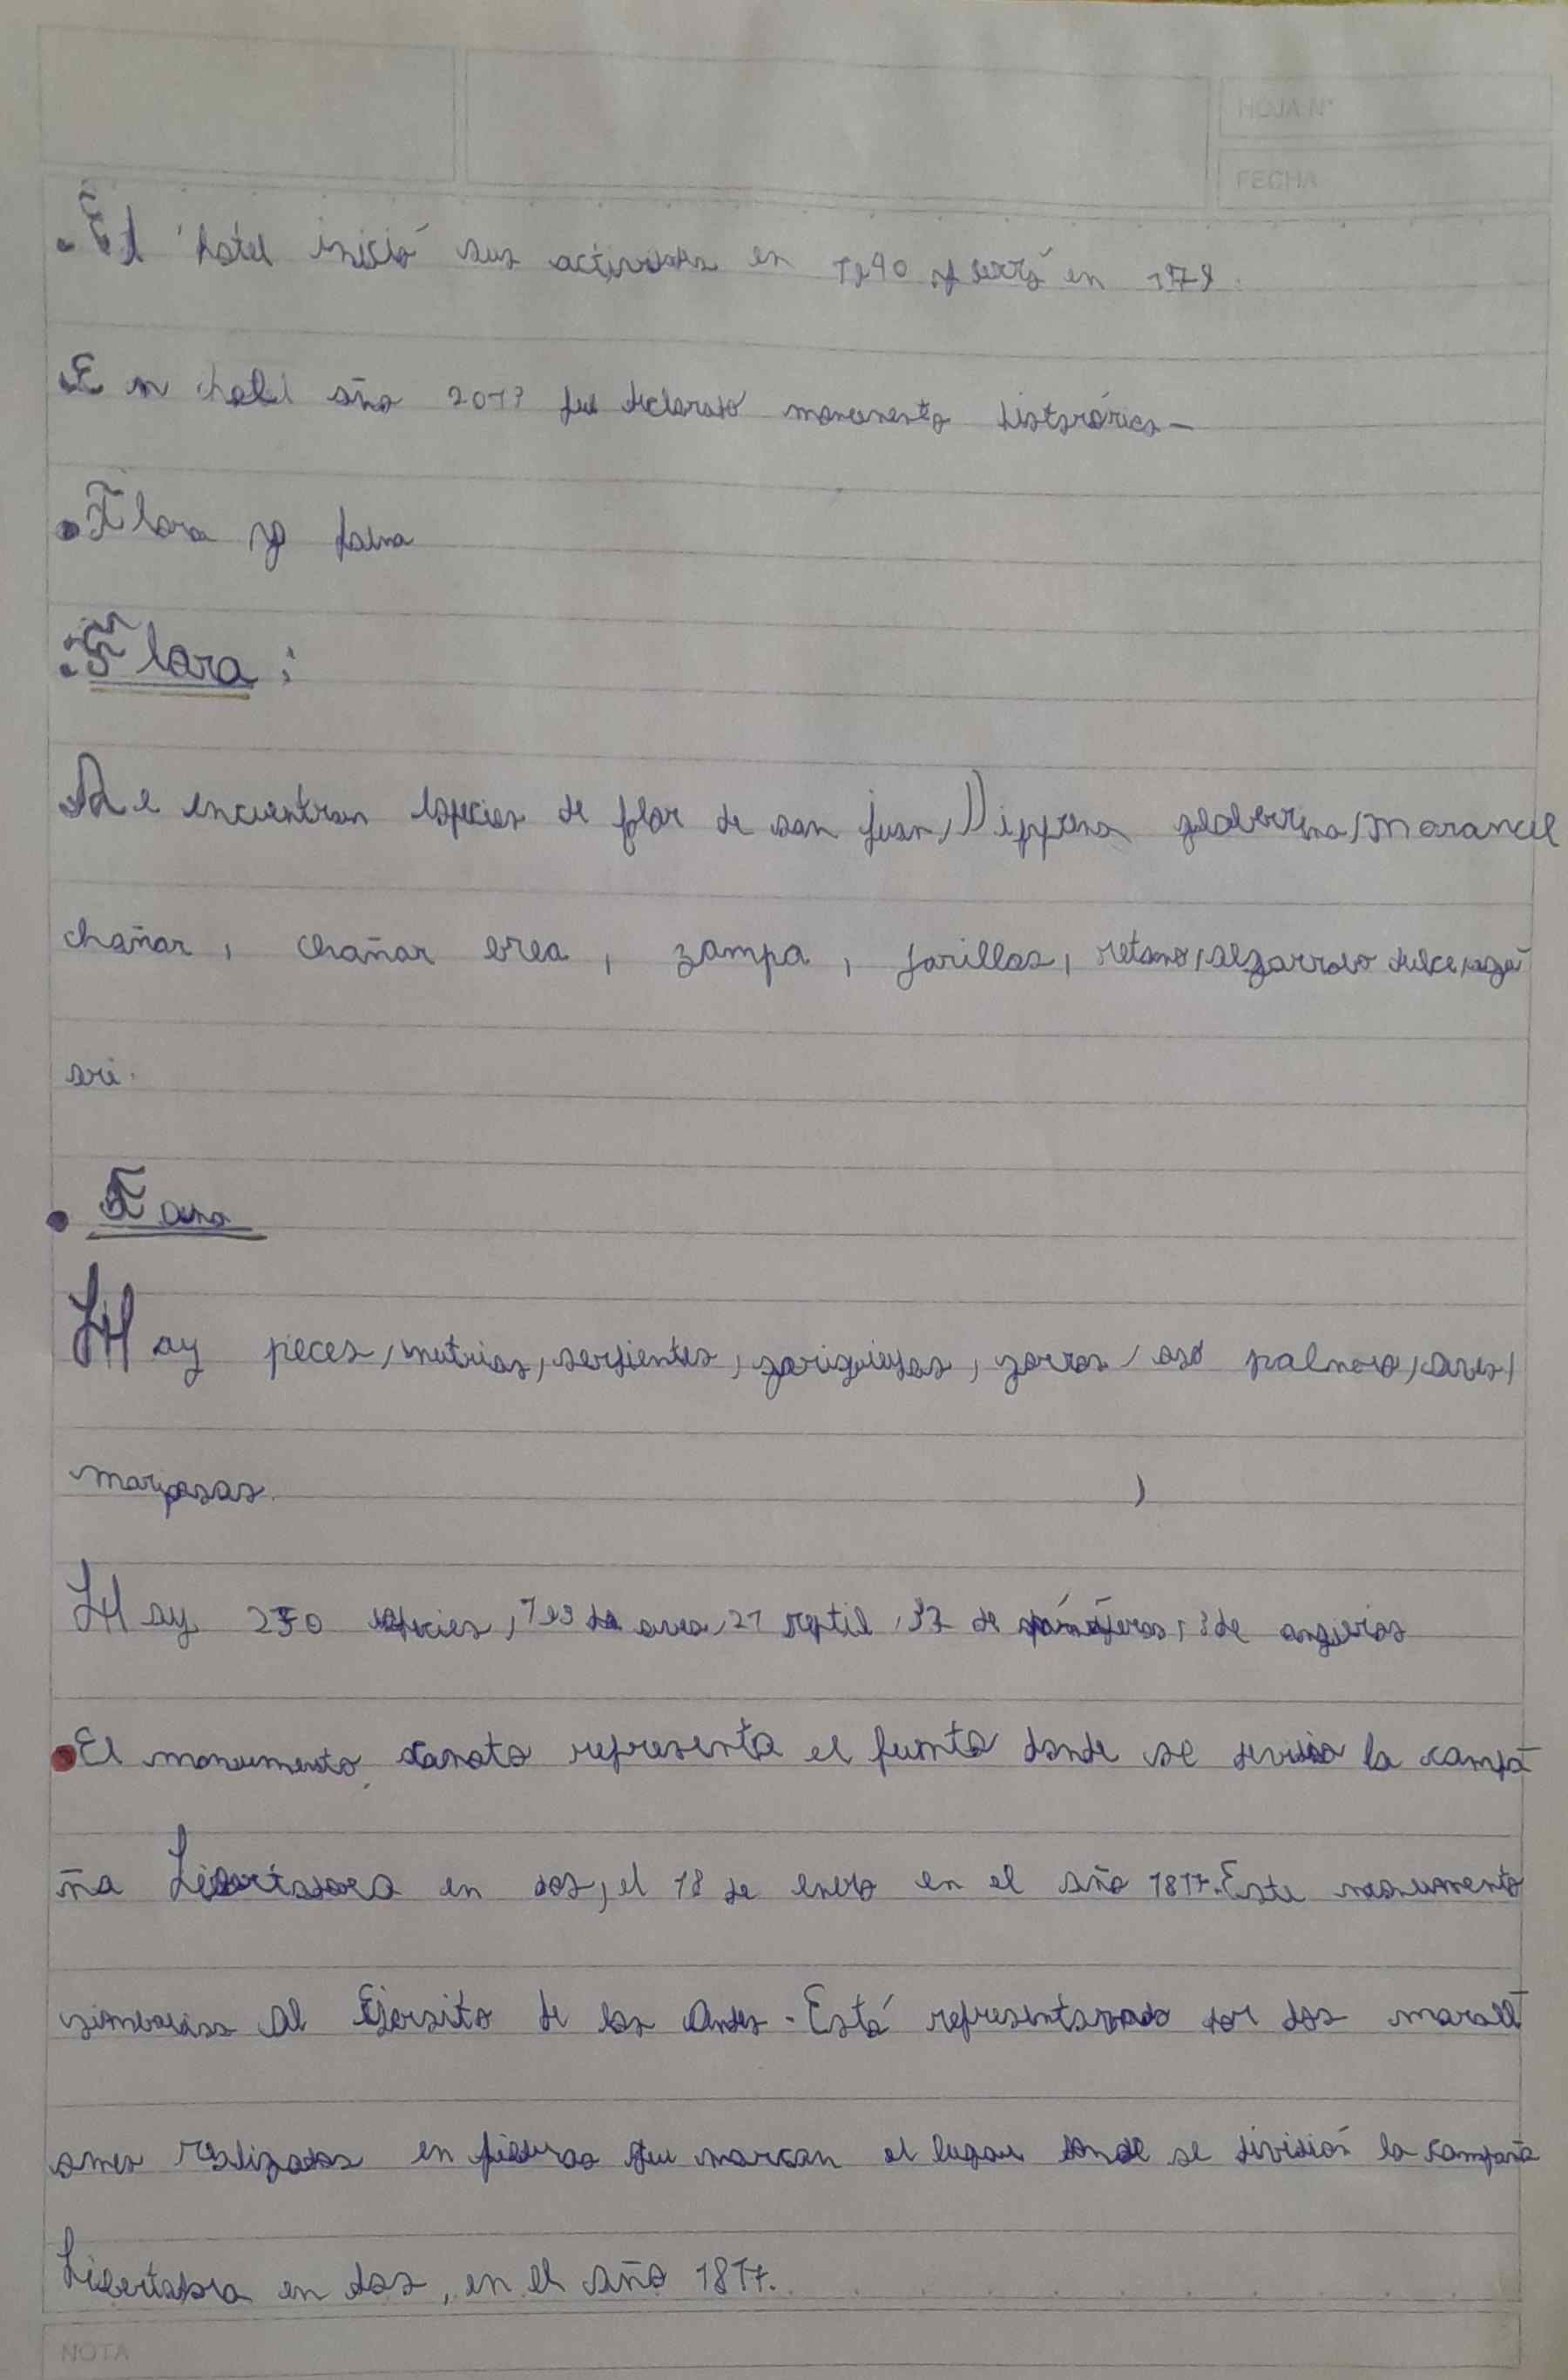 HOJA N°
FECHA
• El hotel inició sus actividades en 1940 y cerró en 1978.
En el año 2013 fue declarado monumento histórico —
• Flora y fauna
• Flora :
Se encuentran especies de flor de san juan, glaberrina,
chañar, chañar brea, zampa, jarillas, retamo, algarrobo dulce,
• Fauna
Hay peces, nutrias, serpientes, zorros, oso palmero, aves,
mariposas.
Hay 250 especies, de aves, 21 reptil, 37 de mámiferos, 3 de
• El monumento canota representa el punto donde se la campa
ña Libertadora en dos, el 18 de enero en el año 1817. Este monumento
al Ejersito de los Andes. Está por dos morall
ones realizados en piedras que marcan el lugar donde se división la campaña
Libertadora en dos, en el año 1817.
NOTA